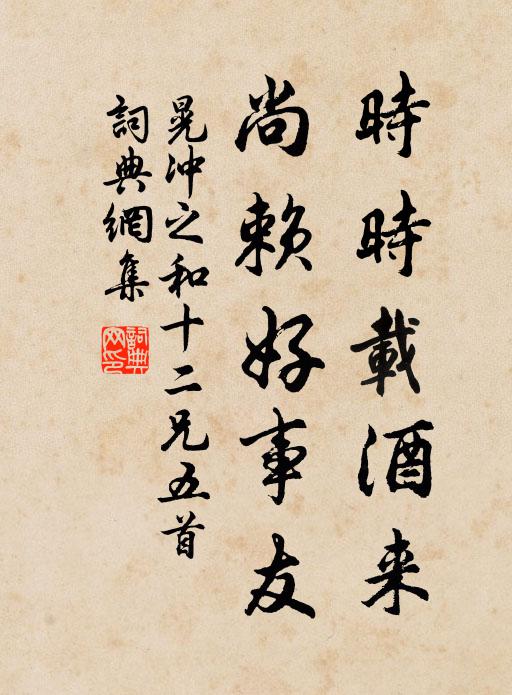 時時載酒来
尚赖好事友
晁沖之和十二兄五首
詞典網集
詞典网印